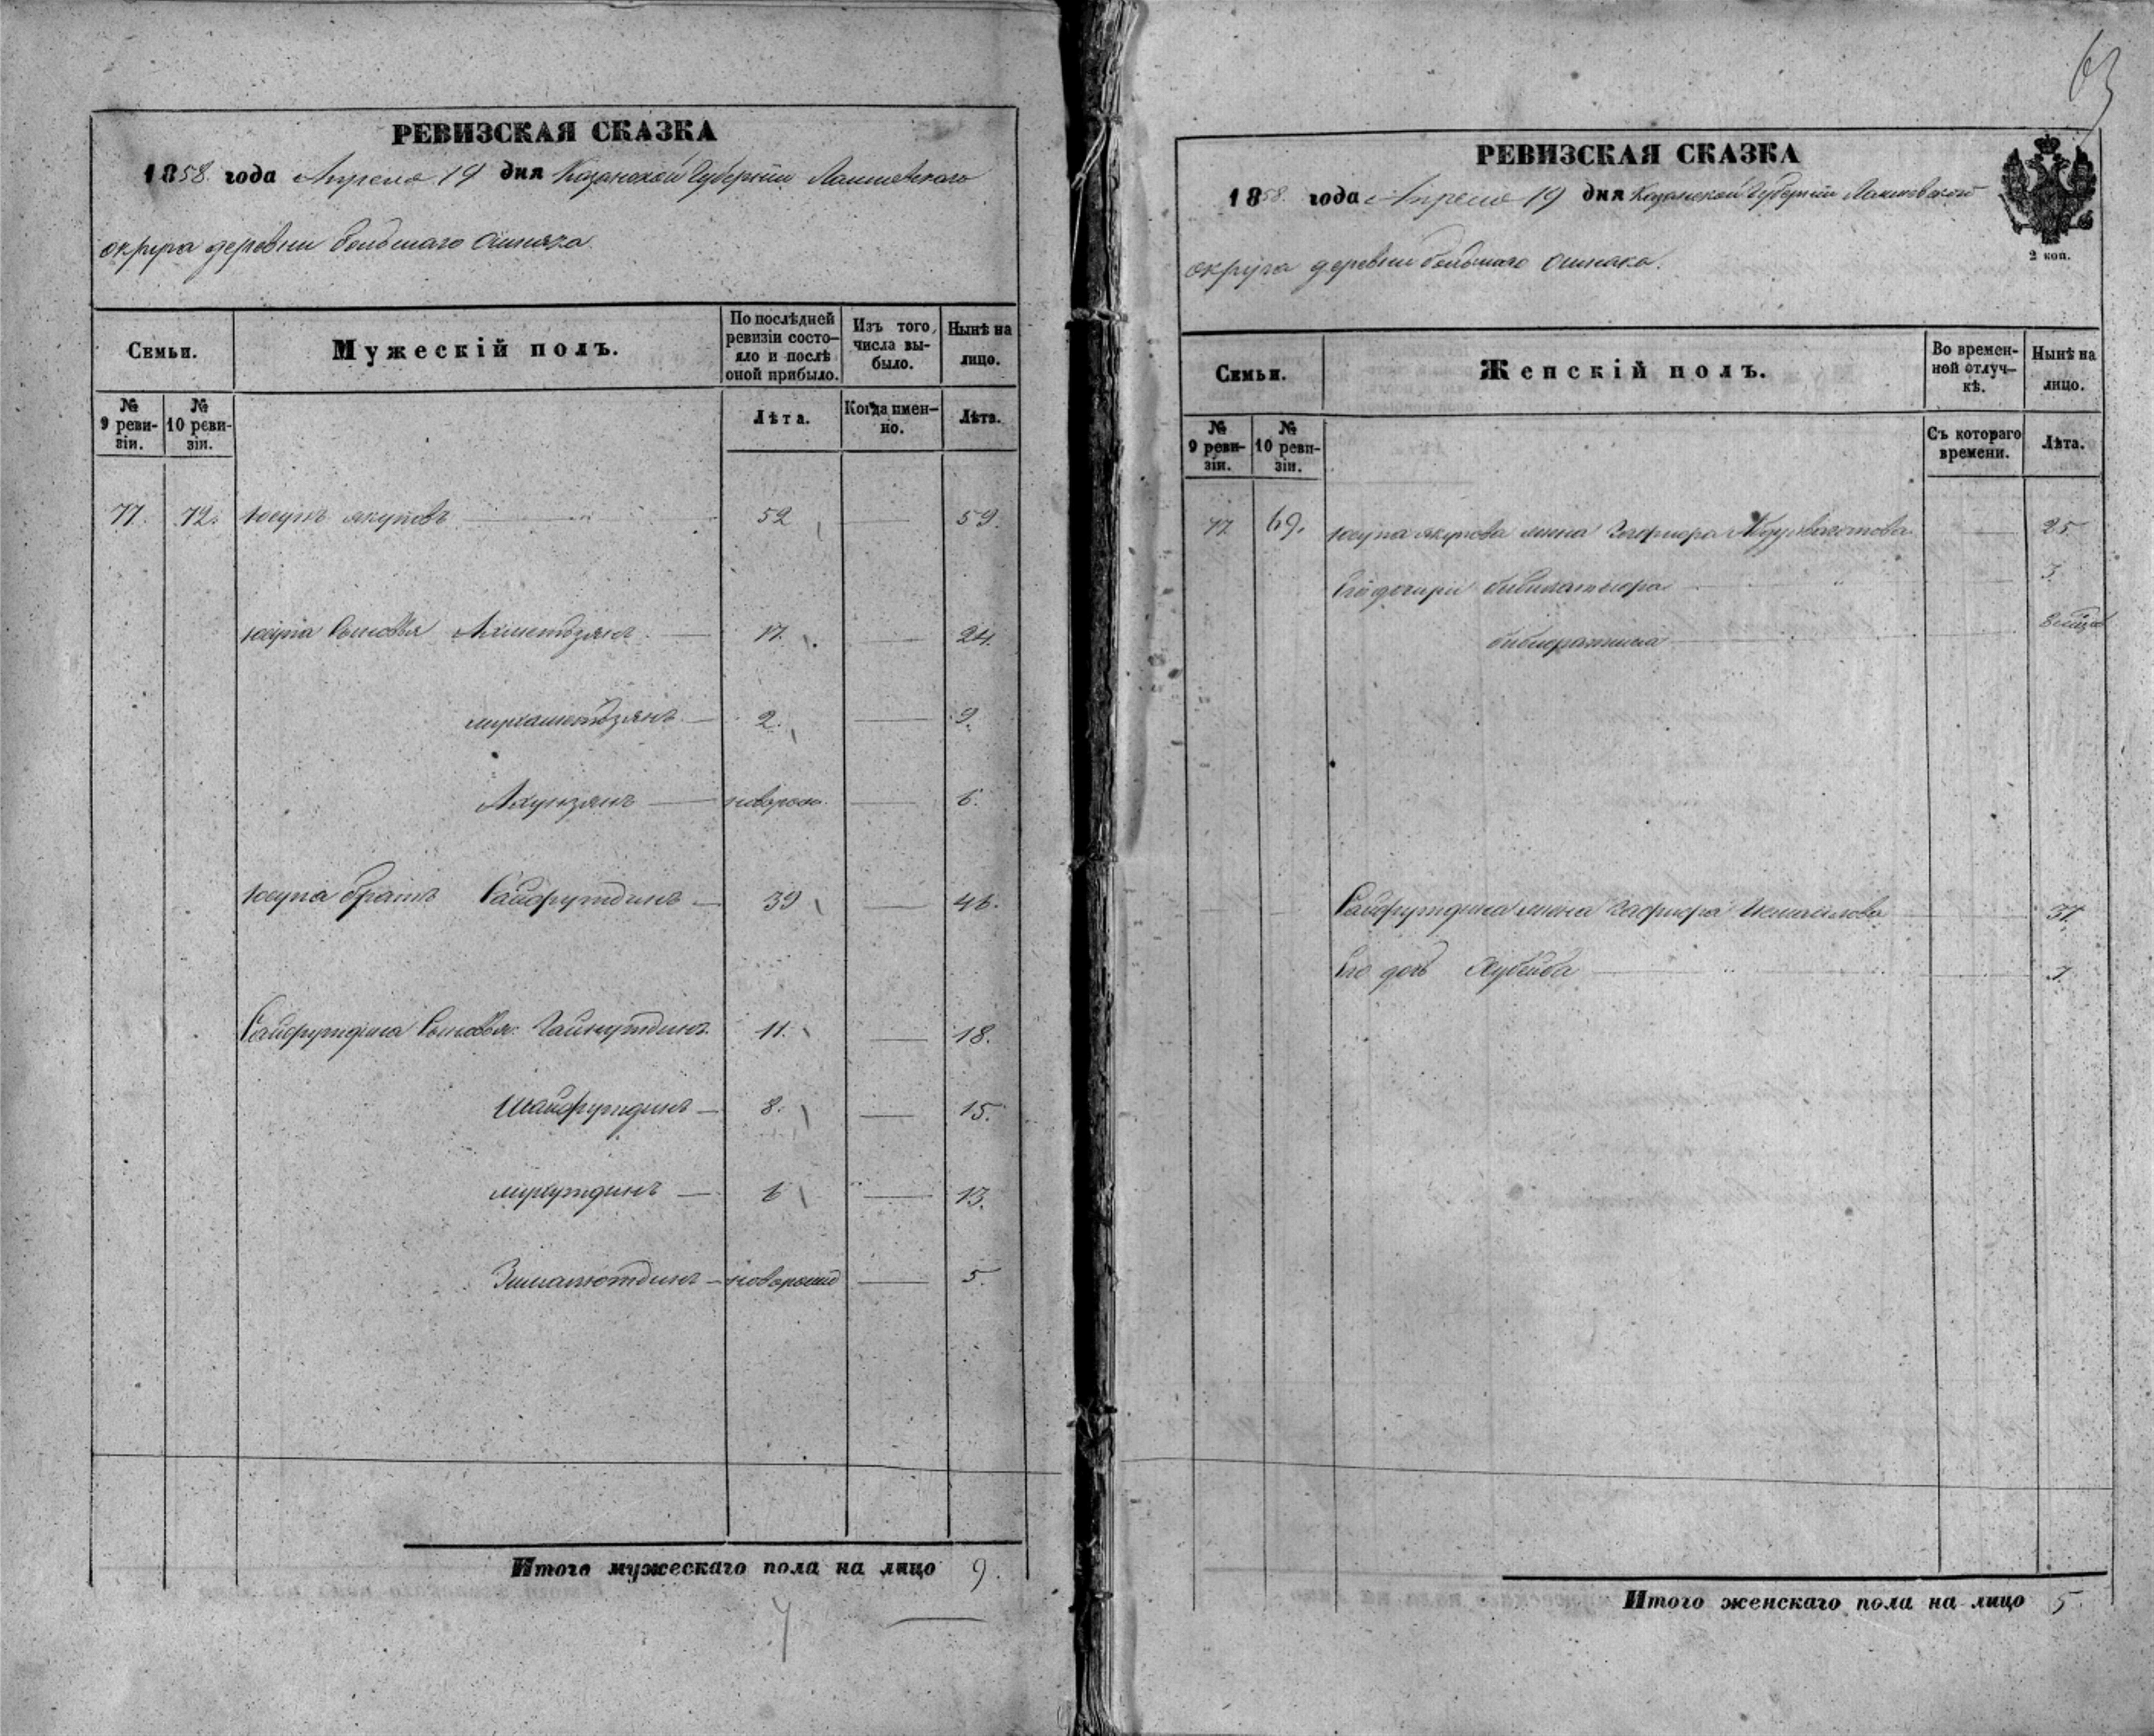 РЕВИЗСКАЯ СКАЗКА
1858. года Апреля 19 дня Казанской Губернии Лаишевскаго
округа деревни большаго Ошняка.
Семьи.
Мужескій полъ.
По послѣдней ревизіи состояло и послѣ оной прибыло.
Изъ того числа выбыло.
Нынѣ на лицо.
№ 9 ревизіи.
№ 10 ревизіи.
Лѣта.
Когда именно.
Лѣта.
77. 72. Юсупъ якуповъ 52 59.
юсупа сыновья Ахметзянъ 17. 24.
мухаметзянъ 2. 9.
Ахунзянъ новорож. 6.
Юсупа братъ Сайфутдинъ 39 46.
Сайфутдина сыновья: Гайнутдинъ 11. 18.
Шайфутдинъ 8. 15.
6 13.
новорожд 5.
Итого мужескаго пола на лицо 9.
63
РЕВИЗСКАЯ СКАЗКА
1858. года Апреля 19 дня Казанской Губернии Лаишевского
2 коп.
округа деревни большаго Ошняка.
Семьи.
Женскій полъ.
Во временной отлучкѣ.
Нынѣ на лицо.
№ 9 ревизіи.
№ 10 ревизіи.
Съ котораго времени.
Лѣта.
77 69. юсупа якупова жена 25
Его дочери 3.
Сайфутдина жена 37.
Его дочь Хубейба 3.
Итого женскаго пола на лицо 5.